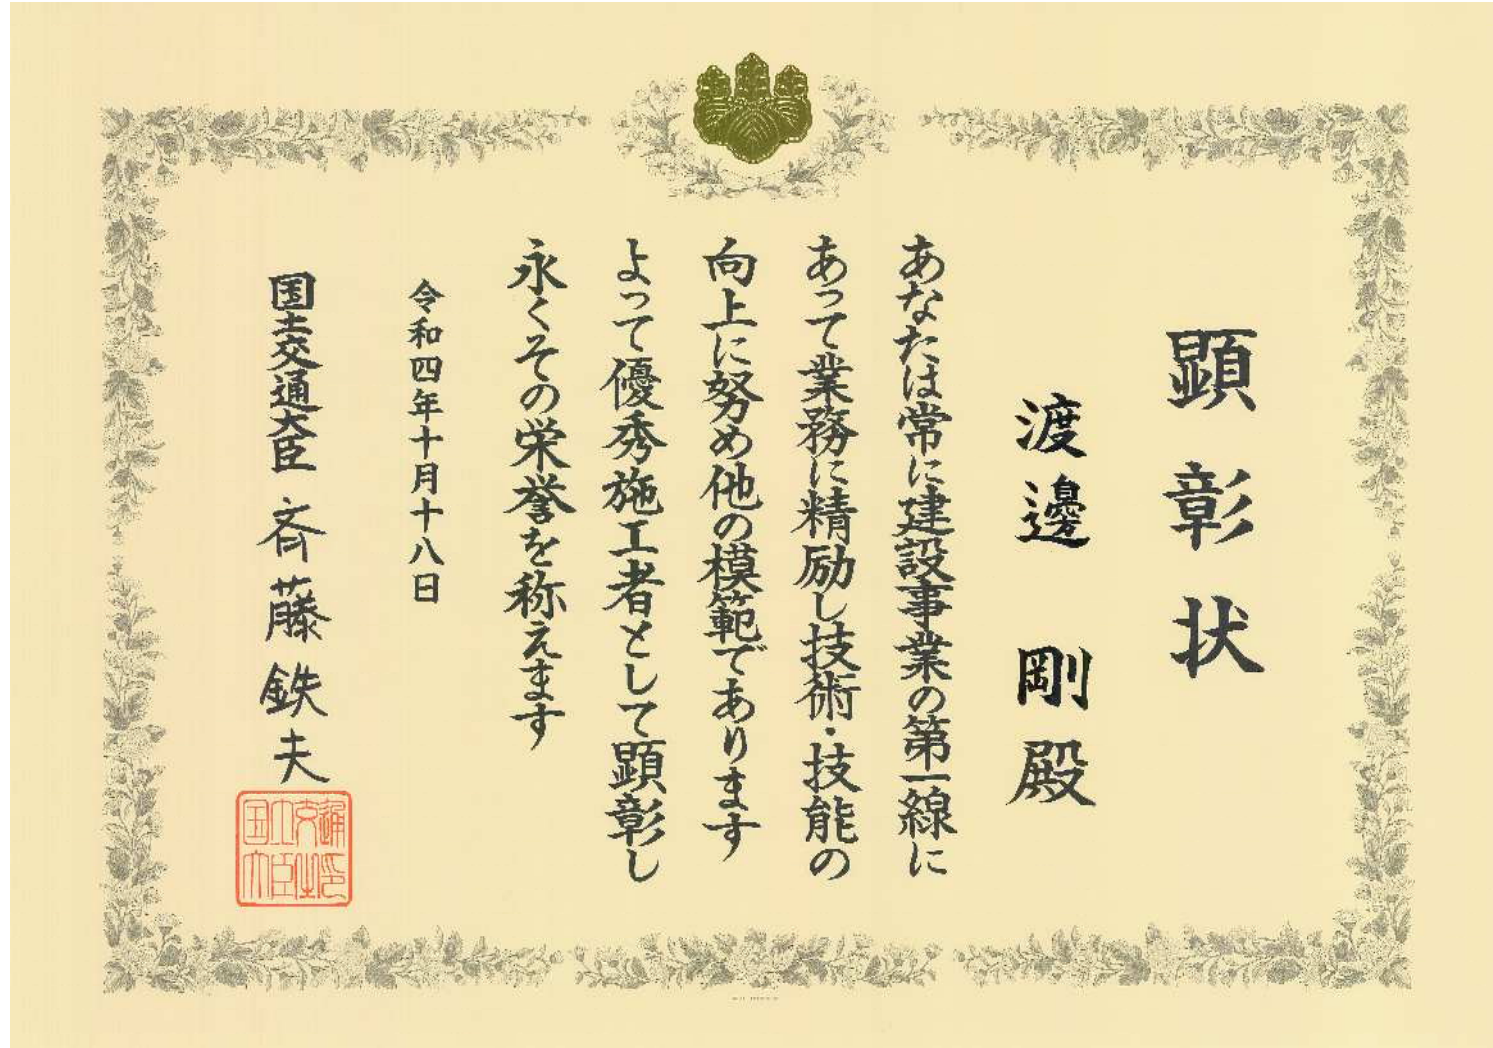 顕彰状
渡邊 剛殿
あなたは常に建設事業の第一線に
あって業務に精励し技術・技能の
向上に努め他の模範であります
よって優秀施工者として顕彰し
永くその栄誉を称えます
令和四年十月十八日
国土交通大臣 斉藤鉄夫